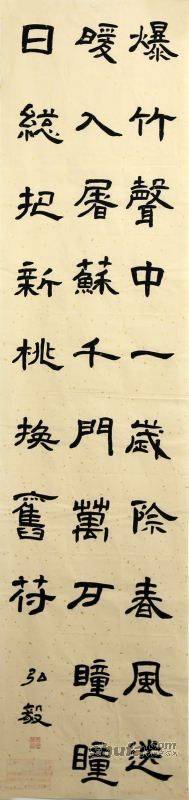 爆竹聲中一歲除春風送
暖入屠蘇千門萬戶瞳瞳
日緫把新桃換舊符
弘毅